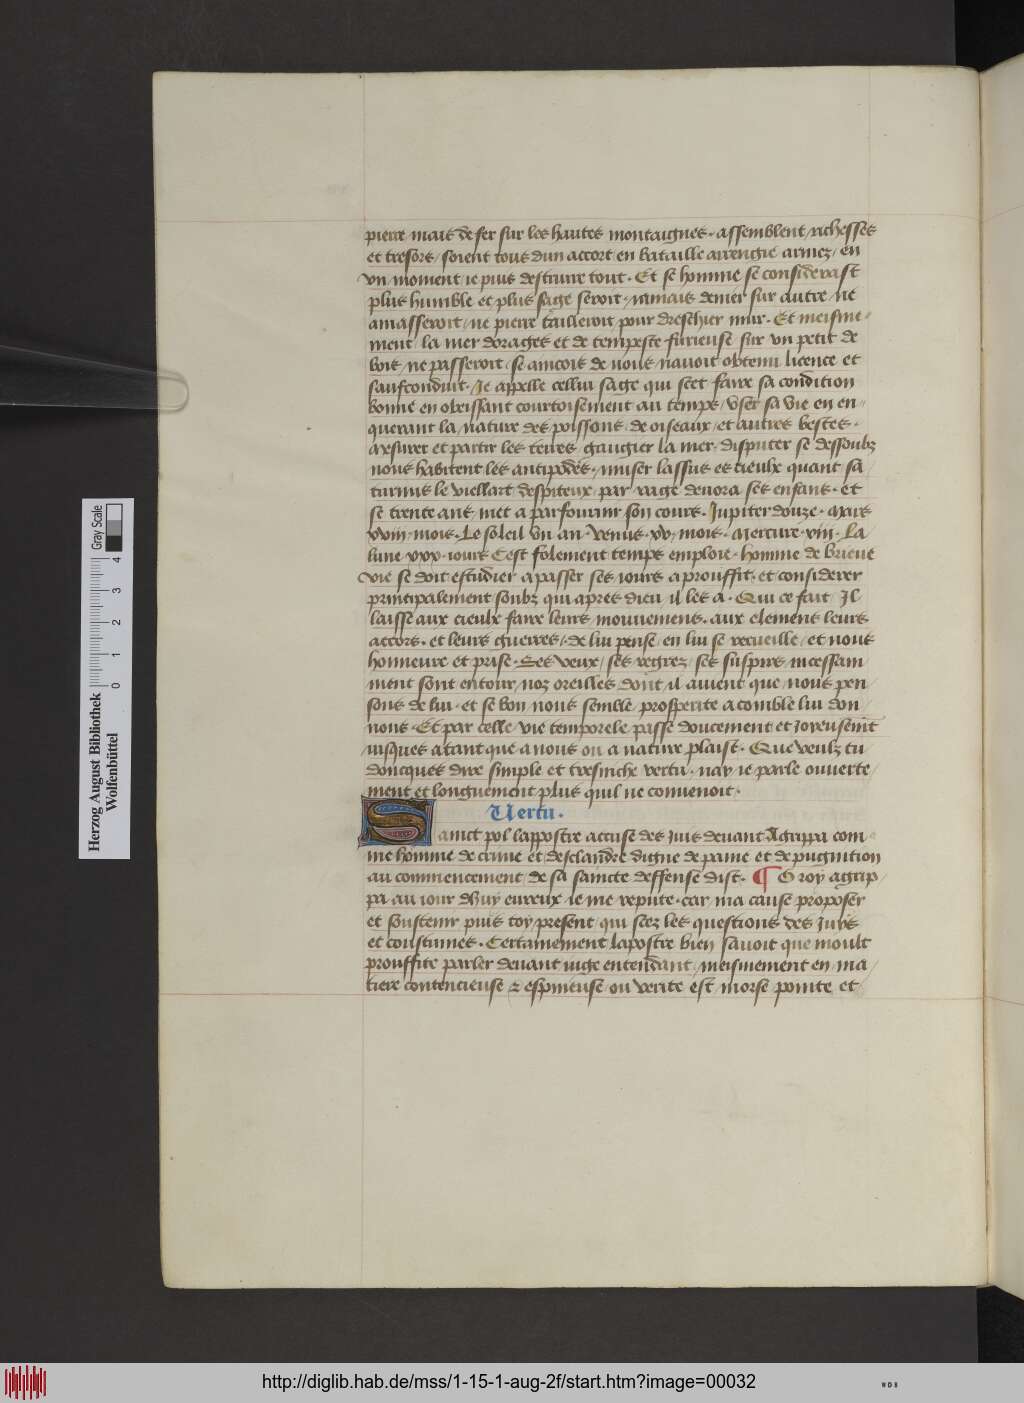 pierre mais de fer sur les haultes montaignes. assemblent richesses
et tresors, soient tous dun accort en bataille arrengie armez, en
vn moment ie puis destruire tout. Et se homme se considerast
plus humble et plus sage seroit, iamais denier sur autre ne
amasseroit, ne pierre tailleroit pour dreschier mur. Et meisme-
ment la mer dorages et de tempeste furieuse sur vn petit de
bois ne passeroit, se aincois de nous nauoit obtenu licence et
saufconduit. Je appelle cellui sage qui scet faire sa condition
bonne en obeissant courtoisement au temps, vser sa vie en en-
querant la nature des poissons, de oiseaux, et autres bestes.
mesurer et partir les terres, gaugier la mer, disputer se dessoubz
nous habitent les antipodes, muser lassus es cieulx quant sa
turnus le viellart despiteux par rage deuora ses enfans. et
se trente ans met a parfournir son cours. Jupiter douze. Mars
xviii mois. Le soleil vn an. Venus. xv. mois. Mercure. viii. La
lune. xxx. iours Cest folement temps emploie. homme de brieue
vie se doit estudier a passer ses iours a prouffit. et considerer
principalement soubz qui apres dieu il les a. Qui ce fait Jl
laisse aux cieulx faire leurs mouuemens. aux elemens leurs
accors. et leurs guerres, de lui pense, en lui se recueille, et nous
honneure et prise. Ses veux, ses regrez, ses suspirs incessam
ment sont entour noz oreilles dont il auient que nous pen
sons de lui. et se bon nous semble prosperite a comble lui don
nons. Et par celle vie temporele passe doucement et Joyeusemt
iusques a tant que a nous ou a nature plaist. Que veulz tu
doncques dire simple et tresriche vertu. nay ie parle ouuerte
ment et longuement plus quil ne conuenoit.
Uertu.
Sainct pol lappostre accuse des Juis deuant Agrippa com-
me homme de crime et desclandre digne de paine et de pugnition
au commencement de sa saincte deffense dist. ¶ O roy agrip
pa au iour dhuy eureux ie me repute. car ma cause proposer
et soustenir puis toy present qui scez les questions des Juys
et coustumes. Certainement lapostre bien sauoit que moult
prouffite parler deuant iuge entendant, meismement en ma
tiere contencieuse & espineuse ou verite est morse pointe et
Herzog August Bibliothek
Wolfenbüttel
0 1 2 3 4
Gray Scale
http://diglib.hab.de/mss/1-15-1-aug-2f/start.htm?image=00032
WDB